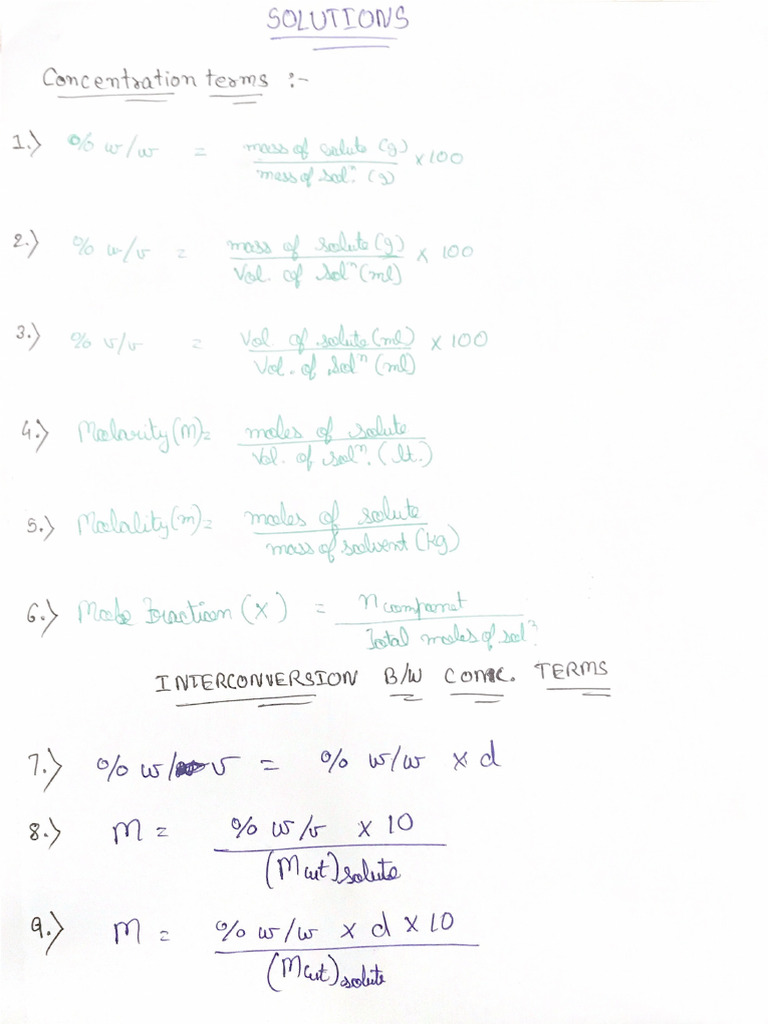 SOLUTIONS
Concentration terms :-
1.) % w/w = mass of solute (g) / mass of solⁿ. (g) × 100
2.) % w/v = mass of solute (g) / Vol. of solⁿ (ml) × 100
3.) % v/v = Vol. of solute (ml) / Vol. of solⁿ (ml) × 100
4.) Molarity (M) = moles of solute / Vol. of solⁿ. (lt.)
5.) Molality (m) = moles of solute / mass of solvent (kg)
6.) Mole Fraction (X) = n componet / Total moles of solⁿ
INTERCONVERSION B/W CONC. TERMS
7.) % w/v = % w/w × d
8.) M = % w/v × 10 / (Mwt) solute
9.) M = % w/w × d × 10 / (Mwt) solute